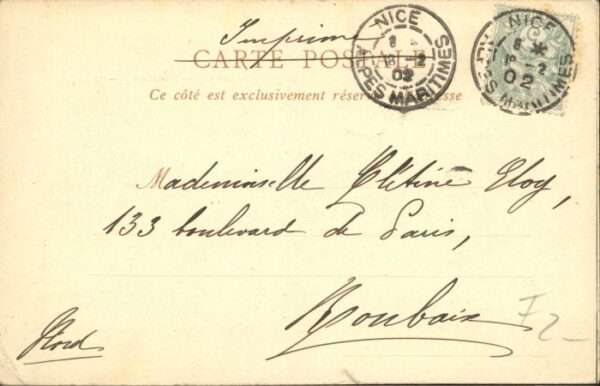 Imprimé
CARTE POSTALE
Ce côté est exclusivement réser esse
NICE
8
2
02
ALPES MARITIMES
NICE
8 *
2
02
ES MARITIMES
Mademoiselle Clétine Eloy,
133 boulevard de Paris,
Roubaix
Nord